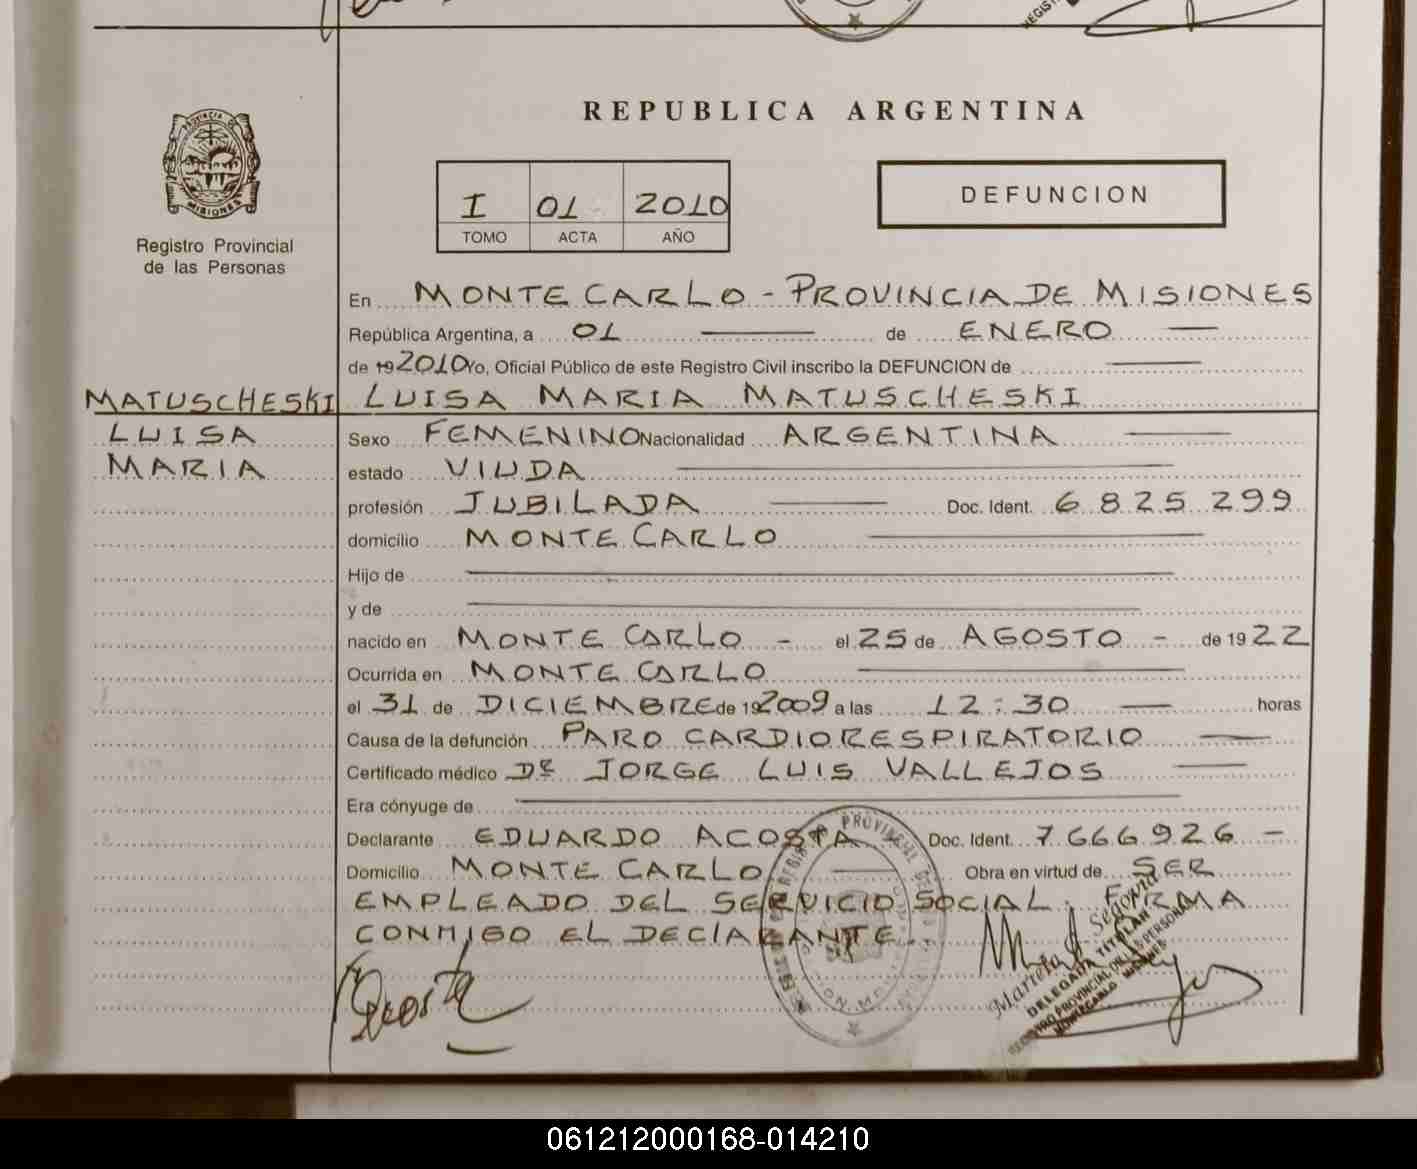 REPUBLICA ARGENTINA
PROVINCIA DE
MISIONES
Registro Provincial
de las Personas
I 01 2010
TOMO ACTA AÑO
DEFUNCION
En MONTE CARLO - PROVINCIA DE MISIONES
República Argentina, a 01 de ENERO
de 19 2010 Yo, Oficial Público de este Registro Civil inscribo la DEFUNCION de
MATUSCHESKI LUISA MARIA MATUSCHESKI
LUISA
MARIA
Sexo FEMENINO Nacionalidad ARGENTINA
estado VIUDA
profesión JUBILADA Doc. Ident. 6.825.299
domicilio MONTE CARLO
Hijo de
y de
nacido en MONTE CARLO - el 25 de AGOSTO - de 19 22
Ocurrida en MONTE CARLO
el 31 de DICIEMBRE de 19 2009 a las 12:30 horas
Causa de la defunción PARO CARDIORESPIRATORIO
Certificado médico Dr JORGE LUIS VALLEJOS
Era cónyuge de
Declarante EDUARDO ACOSTA Doc. Ident. 7.666.926 -
Domicilio MONTE CARLO Obra en virtud de SER
EMPLEADO DEL SERVICIO SOCIAL. FIRMA
CONMIGO EL DECLARANTE.
Acosta
DELEGADA TITULAR
REGISTRO PROVINCIAL DE LAS PERSONAS
MONTECARLO - MISIONES
061212000168-014210